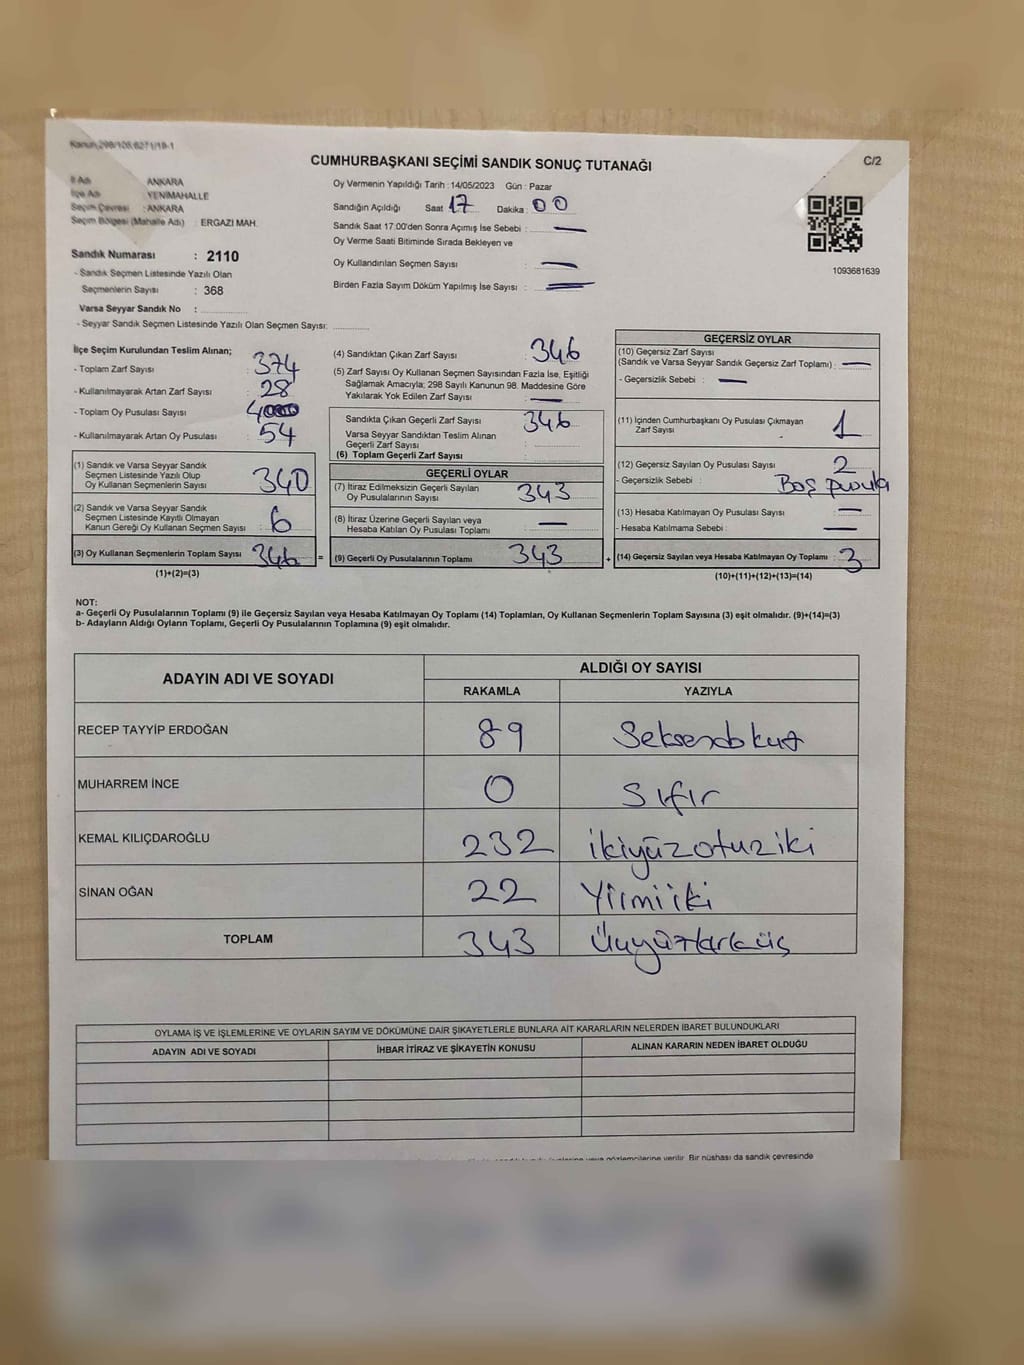 Kanun,298/106,6271/19-1
CUMHURBAŞKANI SEÇİMİ SANDIK SONUÇ TUTANAĞI
C/2
İl Adı : ANKARA
İlçe Adı : YENİMAHALLE
Seçim Çevresi : ANKARA
Seçim Bölgesi (Mahalle Adı) : ERGAZİ MAH.
Oy Vermenin Yapıldığı Tarih : 14/05/2023 Gün : Pazar
Sandığın Açıldığı Saat : 17 Dakika : 00
Sandık Saat 17:00'den Sonra Açımış İse Sebebi : —
Oy Verme Saati Bitiminde Sırada Bekleyen ve
Oy Kullandırılan Seçmen Sayısı : —
Birden Fazla Sayım Döküm Yapılmış İse Sayısı : —
1093681639
Sandık Numarası : 2110
- Sandık Seçmen Listesinde Yazılı Olan
Seçmenlerin Sayısı : 368
Varsa Seyyar Sandık No :
- Seyyar Sandık Seçmen Listesinde Yazılı Olan Seçmen Sayısı:
İlçe Seçim Kurulundan Teslim Alınan;
- Toplam Zarf Sayısı : 374
- Kullanılmayarak Artan Zarf Sayısı : 28
- Toplam Oy Pusulası Sayısı :
- Kullanılmayarak Artan Oy Pusulası : 54
(1) Sandık ve Varsa Seyyar Sandık
Seçmen Listesinde Yazılı Olup
Oy Kullanan Seçmenlerin Sayısı : 340
(2) Sandık ve Varsa Seyyar Sandık
Seçmen Listesinde Kayıtlı Olmayan
Kanun Gereği Oy Kullanan Seçmen Sayısı : 6
(3) Oy Kullanan Seçmenlerin Toplam Sayısı : 346 =
(1)+(2)=(3)
(4) Sandıktan Çıkan Zarf Sayısı : 346
(5) Zarf Sayısı Oy Kullanan Seçmen Sayısından Fazla İse, Eşitliği
Sağlamak Amacıyla; 298 Sayılı Kanunun 98. Maddesine Göre
Yakılarak Yok Edilen Zarf Sayısı : —
Sandıkta Çıkan Geçerli Zarf Sayısı : 346
Varsa Seyyar Sandıktan Teslim Alınan
Geçerli Zarf Sayısı :
(6) Toplam Geçerli Zarf Sayısı :
GEÇERLİ OYLAR
(7) İtiraz Edilmeksizin Geçerli Sayılan
Oy Pusulalarının Sayısı : 343
(8) İtiraz Üzerine Geçerli Sayılan veya
Hesaba Katılan Oy Pusulası Toplamı : —
(9) Geçerli Oy Pusulalarının Toplamı : 343 +
GEÇERSİZ OYLAR
(10) Geçersiz Zarf Sayısı
(Sandık ve Varsa Seyyar Sandık Geçersiz Zarf Toplamı) : —
- Geçersizlik Sebebi : —
(11) İçinden Cumhurbaşkanı Oy Pusulası Çıkmayan
Zarf Sayısı : 1
(12) Geçersiz Sayılan Oy Pusulası Sayısı : 2
- Geçersizlik Sebebi : Boş pusula
(13) Hesaba Katılmayan Oy Pusulası Sayısı : —
- Hesaba Katılmama Sebebi : —
(14) Geçersiz Sayılan veya Hesaba Katılmayan Oy Toplamı : 3
(10)+(11)+(12)+(13)=(14)
NOT:
a- Geçerli Oy Pusulalarının Toplamı (9) ile Geçersiz Sayılan veya Hesaba Katılmayan Oy Toplamı (14) Toplamları, Oy Kullanan Seçmenlerin Toplam Sayısına (3) eşit olmalıdır. (9)+(14)=(3)
b- Adayların Aldığı Oyların Toplamı, Geçerli Oy Pusulalarının Toplamına (9) eşit olmalıdır.
ADAYIN ADI VE SOYADI ALDIĞI OY SAYISI
RAKAMLA YAZIYLA
RECEP TAYYİP ERDOĞAN 89 Seksendokuz
MUHARREM İNCE 0 Sıfır
KEMAL KILIÇDAROĞLU 232 ikiyüzotuziki
SİNAN OĞAN 22 Yirmiiki
TOPLAM 343 Üçyüzkırküç
OYLAMA İŞ VE İŞLEMLERİNE VE OYLARIN SAYIM VE DÖKÜMÜNE DAİR ŞİKAYETLERLE BUNLARA AİT KARARLARIN NELERDEN İBARET BULUNDUKLARI
ADAYIN ADI VE SOYADI İHBAR İTİRAZ VE ŞİKAYETİN KONUSU ALINAN KARARIN NEDEN İBARET OLDUĞU
gözlemcilerine verilir. Bir nüshası da sandık çevresinde